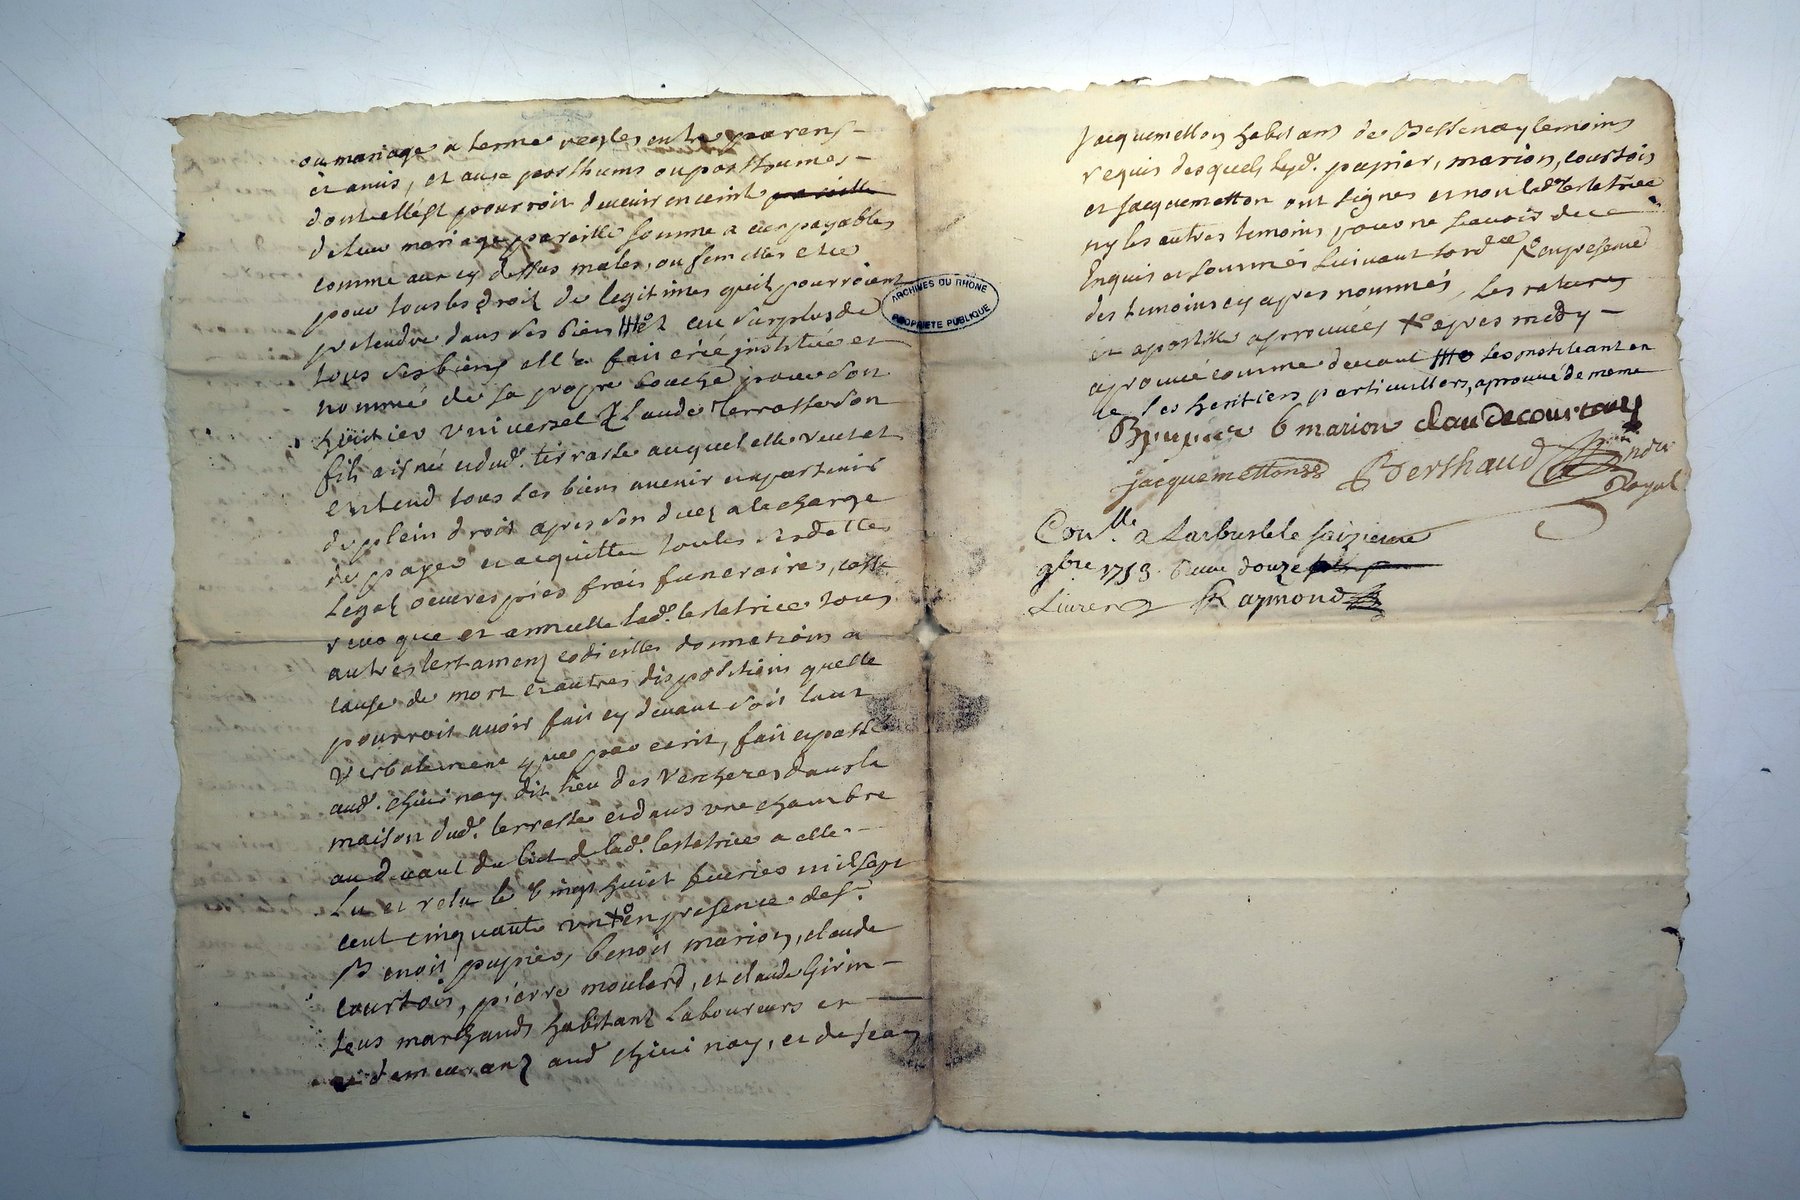 ou mariage a terme regles entre parens
et amis, et aux posthums ou posthumes
dont elle est pourroit devenir enceint
de leur mariage pareille somme a eux payables
comme aux cy dessus males, ou femelles et ce
pour tous les droit de legitimes qu'il pourroient
pretendre dans ses biens et au surplus de
tous ses biens elle a fait créé institué et
nommé de sa propre bouche pour son
heritier universel Claude Terrasse son
fils aisné et dud. terrasse auquel elle veut et
entend tous ses biens avenir et apartenir
de plein droit apres son decez a la charge
de payer et acquitter toutes ses dettes
legaz oeuvres pies frais funeraires, casse
revoque et annulle lad. testatrice tous
autres testamens codicilles donnations a
cause de mort et autres dispositions quelle
pourroit avoir fait cy devant soit tant
verbalement que par ecrit, fait et passé
aud. chivinay dit lieu des Vercheres dans la
maison dud. terrasse et dans une chambre
au devant du lict de lad. testatrice a elle
lu et relu le vingt huict fevrier mil sept
cent cinquante un en presence de sr.
Benoit pupier, benoit marion, claude
courtois, pierre moulard, et claude Girin
tous marchands habitans laboureurs et
demeurans aud chivinay, et de Jean
Jacquemetton habitans de Bessenay temoins
requis desquels lesd. pupier, marion, courtois
et Jacquemetton ont signés et non lad. testatrice
ny les autres temoins pour ne savoir de ce
Enquis et sommés suivant lord.ce en presence
des temoins cy apres nommés, les ratures
et apostille approuvées apres midy
aprouvé comme devant les instituant en
ce les heritiers particuilliers, aprouvé de meme
B pupier b marion claude courtois
jacquemetton Berthaud
Royal
Con.lle a Larbresle le saizieme
9bre 1753. Receu douze
Livres Raymond
ARCHIVES DU RHÔNE
PROPRIETE PUBLIQUE